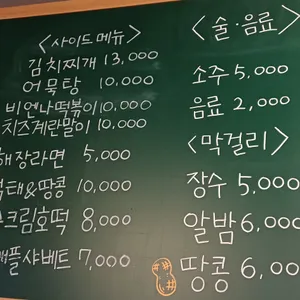 <사이드메뉴>
김치찌개 13,000
어묵탕 10,000
비엔나떡볶이 10,000
치즈계란말이 10,000
해장라면 5,000
먹태&땅콩 10,000
크림호떡 8,000
플샤베트 7,000
<술·음료>
소주 5,000
음료 2,000
<막걸리>
장수 5,000
알밤 6,00
땅콩 6,00